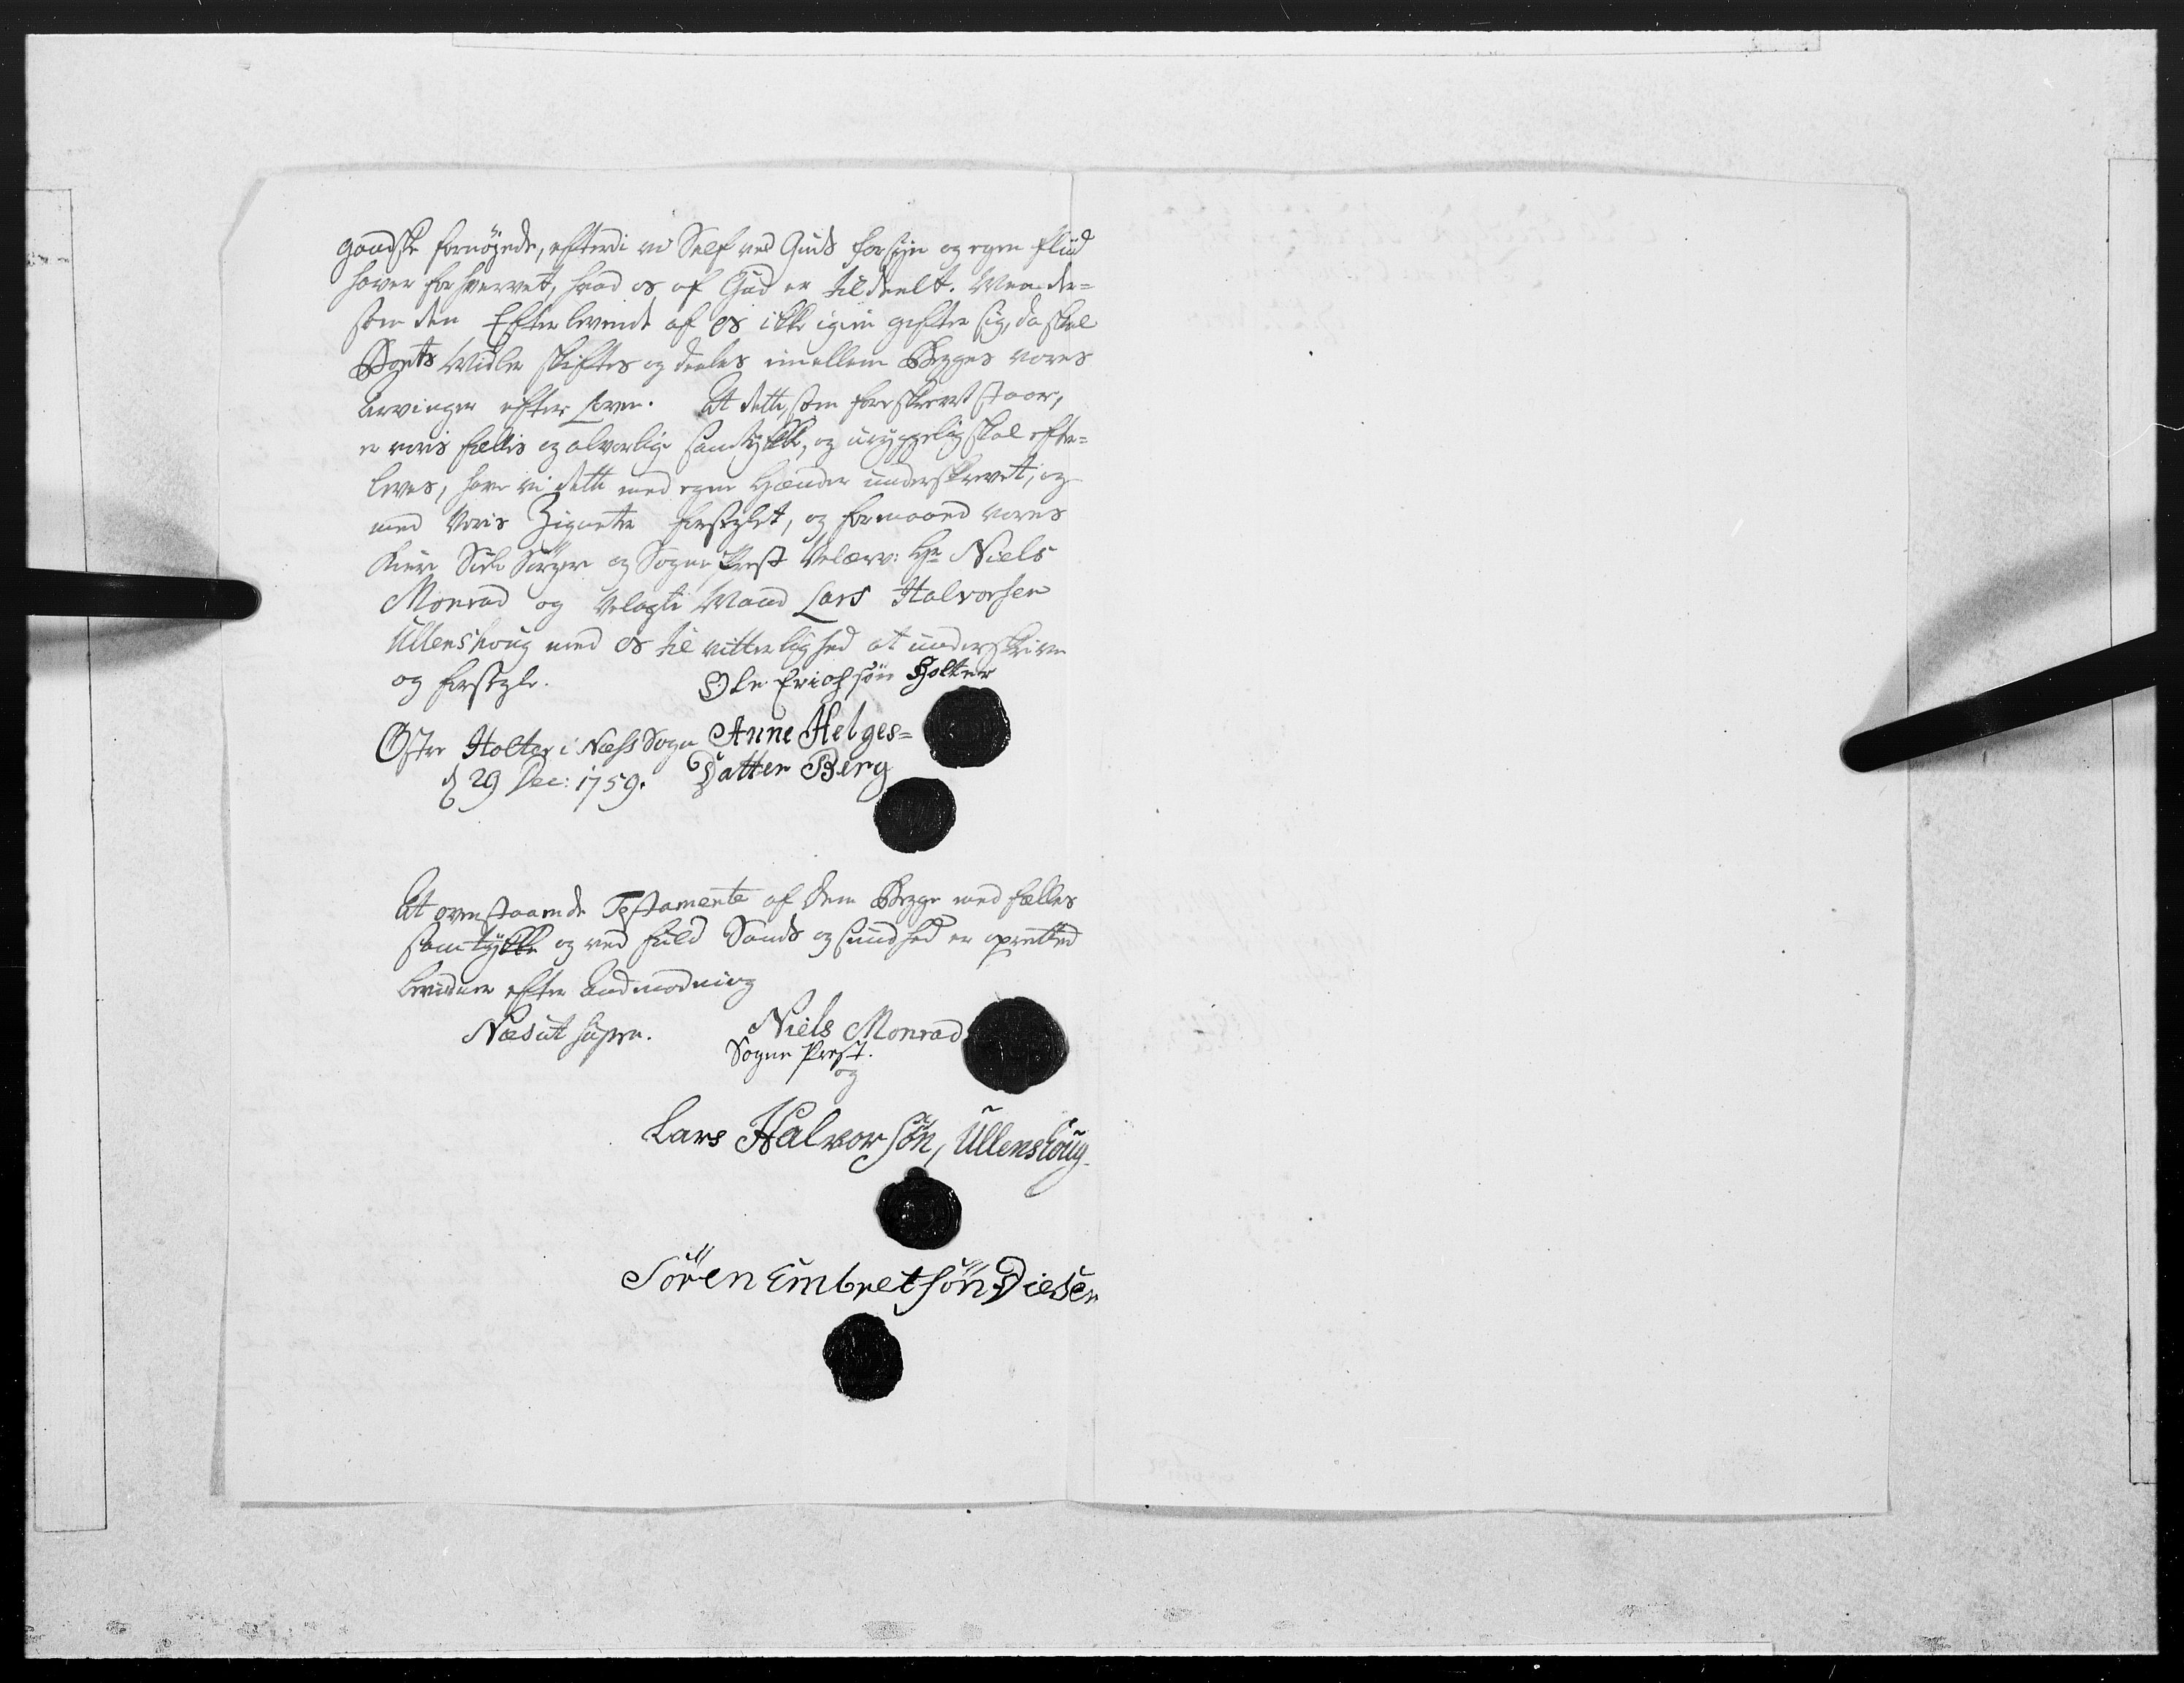 gandske fornøyede, efterdi vi Self ved Guds forsyn og egen fliid
haver forhvervet, hvad os af Gud er tildeelt. Men der=
som den Efterlevende af os ikke igien gifter sig, da skal
Boets Midler skiftes og deeles imellem Begges vores
Arvinger efter Loven. At dette, som foreskrevet staar,
er voris fælles og alvorlige samtykke, og uryggelig skal efter=
leves, have vi dette med egne Hænder underskrevet, og
med Voris Zigneter forseglet, og formaaed vores
Kiere Siele Sørger og Sogne Prest Velærv: Hr Niels
Monrad og Velagte Mand Lars Halvorsen
Ullenshoug med os til vitterlighed at underskrive
og forsegle.
Ole Erichsøn Holter
Østre Holter i Næss Sogn Anne Helges=
d 29 Dec: 1759. Datter Berg
At ovenstaaende Testamente af dem Begge med fælles
samtykke og ved fuld Sands og sundhed er oprettet
bevidner efter Anmodning
Næs ut supra. Niels Monrad
Sogne Prest.
og
Lars Halvorsøn, Ullenshoug
Sören Embretsön Diesen